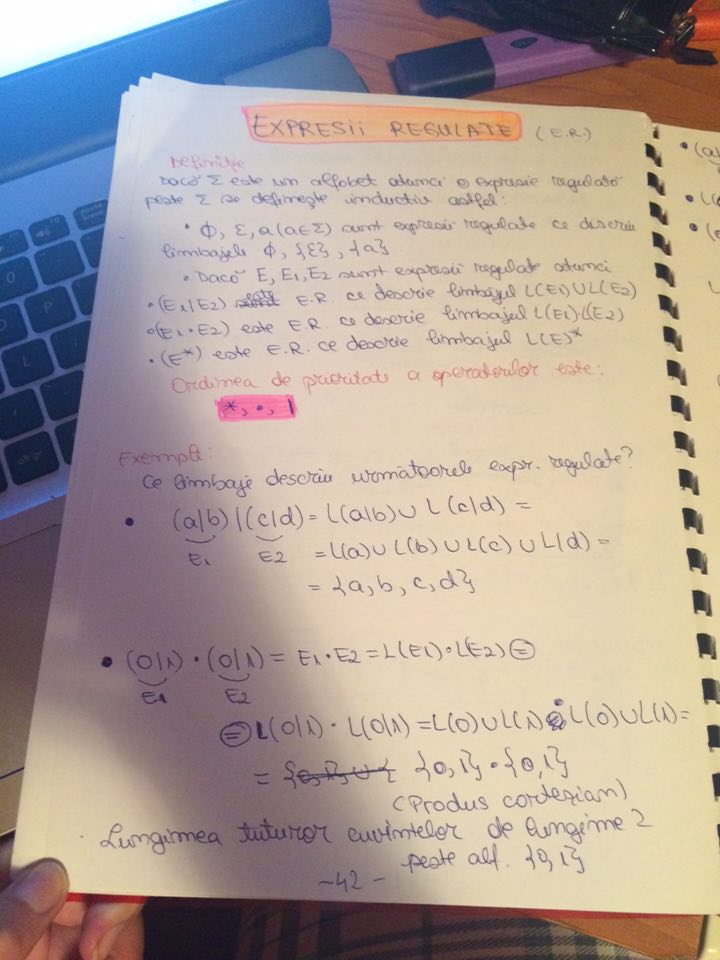 EXPRESII REGULATE (E.R.)
Definiție
Dacă Σ este un alfabet atunci o expresie regulată
peste Σ se definește inductiv astfel:
• Φ, Ɛ, a(a∈Σ) sunt expresii regulate ce descriu
limbajele Φ, {Ɛ}, {a}
• Dacă E, E1, E2 sunt expresii regulate atunci
• (E1|E2) este E.R. ce descrie limbajul L(E1)∪L(E2)
• (E1·E2) este E.R. ce descrie limbajul L(E1)·L(E2)
• (E*) este E.R. ce descrie limbajul L(E)*
Ordinea de prioritate a operatorilor este:
*, •, |
Exemple:
Ce limbaje descriu următoarele expr. regulate?
• (a|b)|(c|d) = L(a|b) ∪ L(c|d) =
E1 E2 = L(a) ∪ L(b) ∪ L(c) ∪ L(d) =
= {a, b, c, d}
• (0|1) · (0|1) = E1 · E2 = L(E1) · L(E2) =
E1 E2
= L(0|1) · L(0|1) = L(0) ∪ L(1) · L(0) ∪ L(1) =
= {0,1} · {0,1}
(Produs cartezian)
Lungimea tuturor cuvintelor de lungime 2
peste alf. {0,1}
-42-